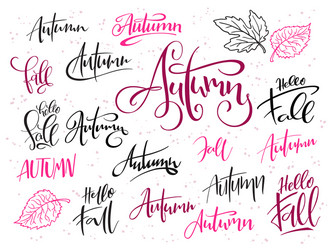 Autumn
Autumn
fall
Autumn
Autumn
Hello
Fall
hello
fall
Autumn
Autumn
Autumn
fall
Autumn
Hello
Fall
Autumn
Autumn
Autumn
Hello
Fall